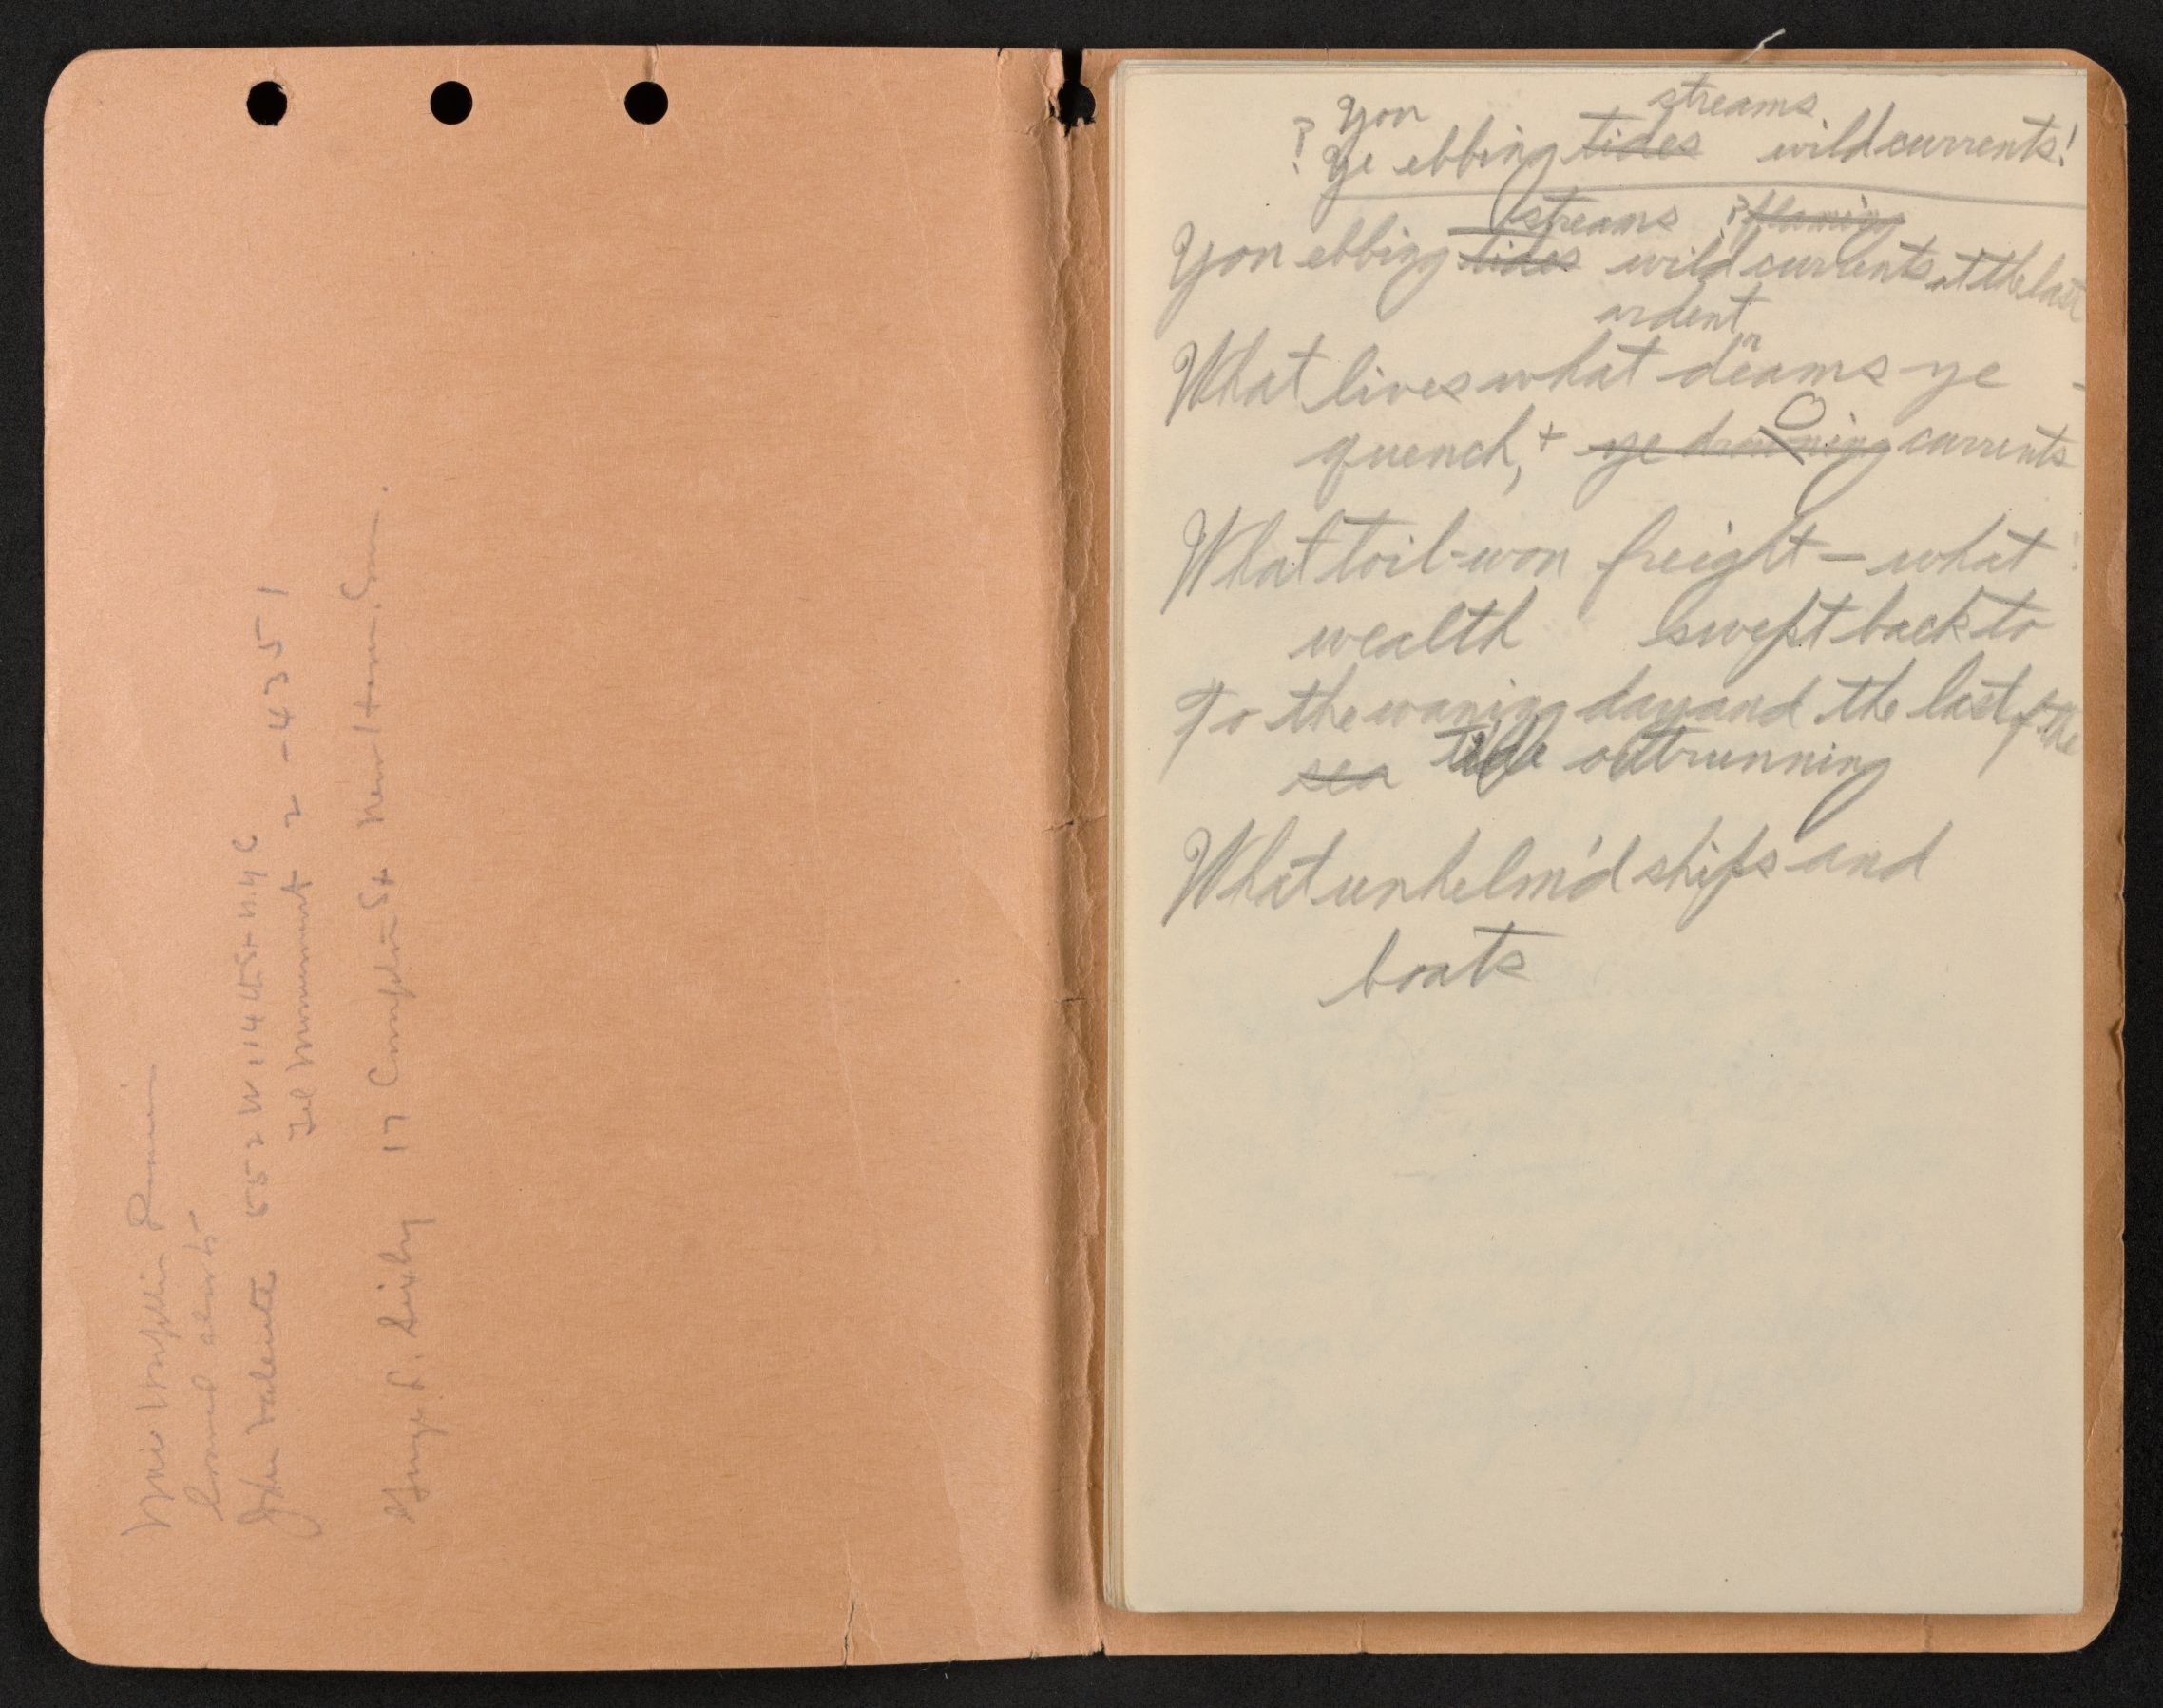 John Valente 552 W 114th St N.Y C
Tel Monument 2-4351
George L. 17 St New Haven. Conn.
You streams
? Ye ebbing tides wild currents!
streams ? flaming
You ebbing tides wild currents at the last
ardent
What lives what dreams ye
quench, + ye drowning currents
What toil-won freight — what
wealth swept back to
To the waning day and the last of the
sea tide outrunning
What unhelm'd ships and
boats